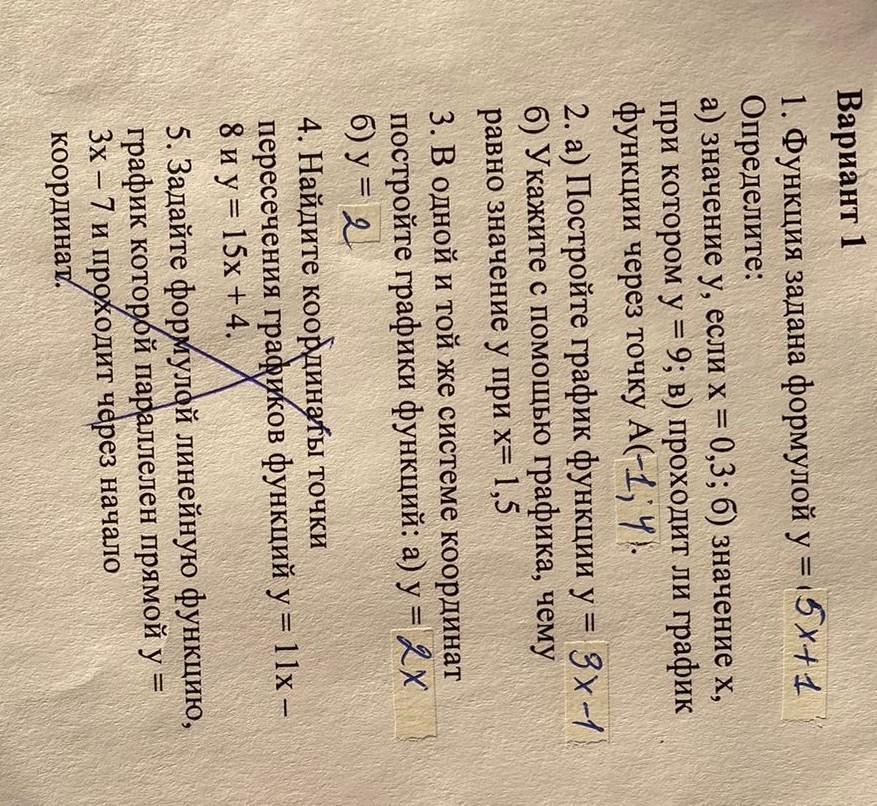 Вариант 1
1. Функция задана формулой у = 5х+1
Определите:
а) значение у, если х = 0,3; б) значение х,
при котором у = 9; в) проходит ли график
функции через точку А(-1; 4).
2. а) Постройте график функции у = 3х-1
б) Укажите с помощью графика, чему
равно значение у при х= 1,5
3. В одной и той же системе координат
постройте графики функций: а) у = 2х
б) у = 2
4. Найдите координаты точки
пересечения графиков функций у = 11х –
8 и у = 15х + 4.
5. Задайте формулой линейную функцию,
график которой параллелен прямой у =
3х – 7 и проходит через начало
координат.